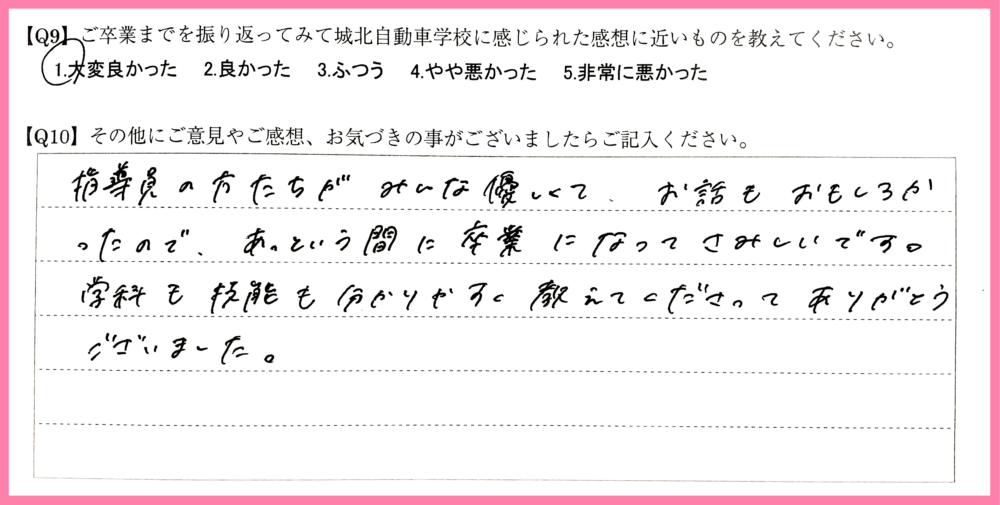 【Q9】ご卒業までを振り返ってみて城北自動車学校に感じられた感想に近いものを教えてください。
1.大変良かった 2.良かった 3.ふつう 4.やや悪かった 5.非常に悪かった
【Q10】その他にご意見やご感想、お気づきの事がございましたらご記入ください。
指導員の方たちが みんな優しくて、お話も おもしろか
ったので、あっという間に 卒業 になって さみしいです。
学科も技能も分かりやすく教えてくださって ありがとう
ございました。